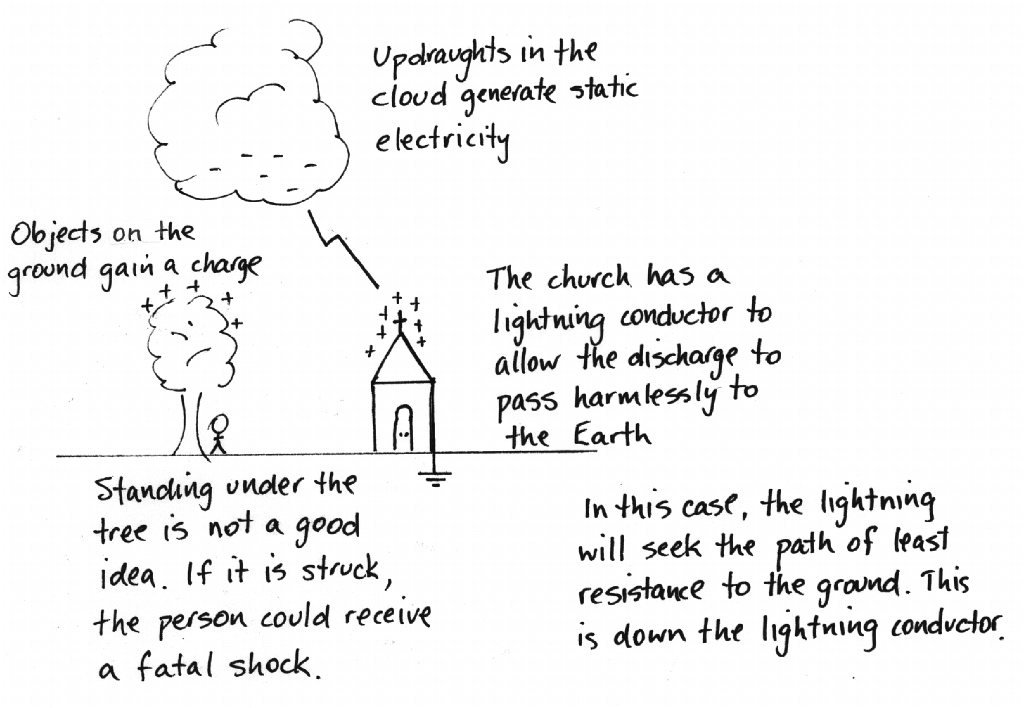 Updraughts in the
cloud generate static
electricity
Objects on the
ground gain a charge
The church has a
lightning conductor to
allow the discharge to
pass harmlessly to
the Earth
Standing under the
tree is not a good
idea. If it is struck,
the person could receive
a fatal shock.
In this case, the lightning
will seek the path of least
resistance to the ground. This
is down the lightning conductor.